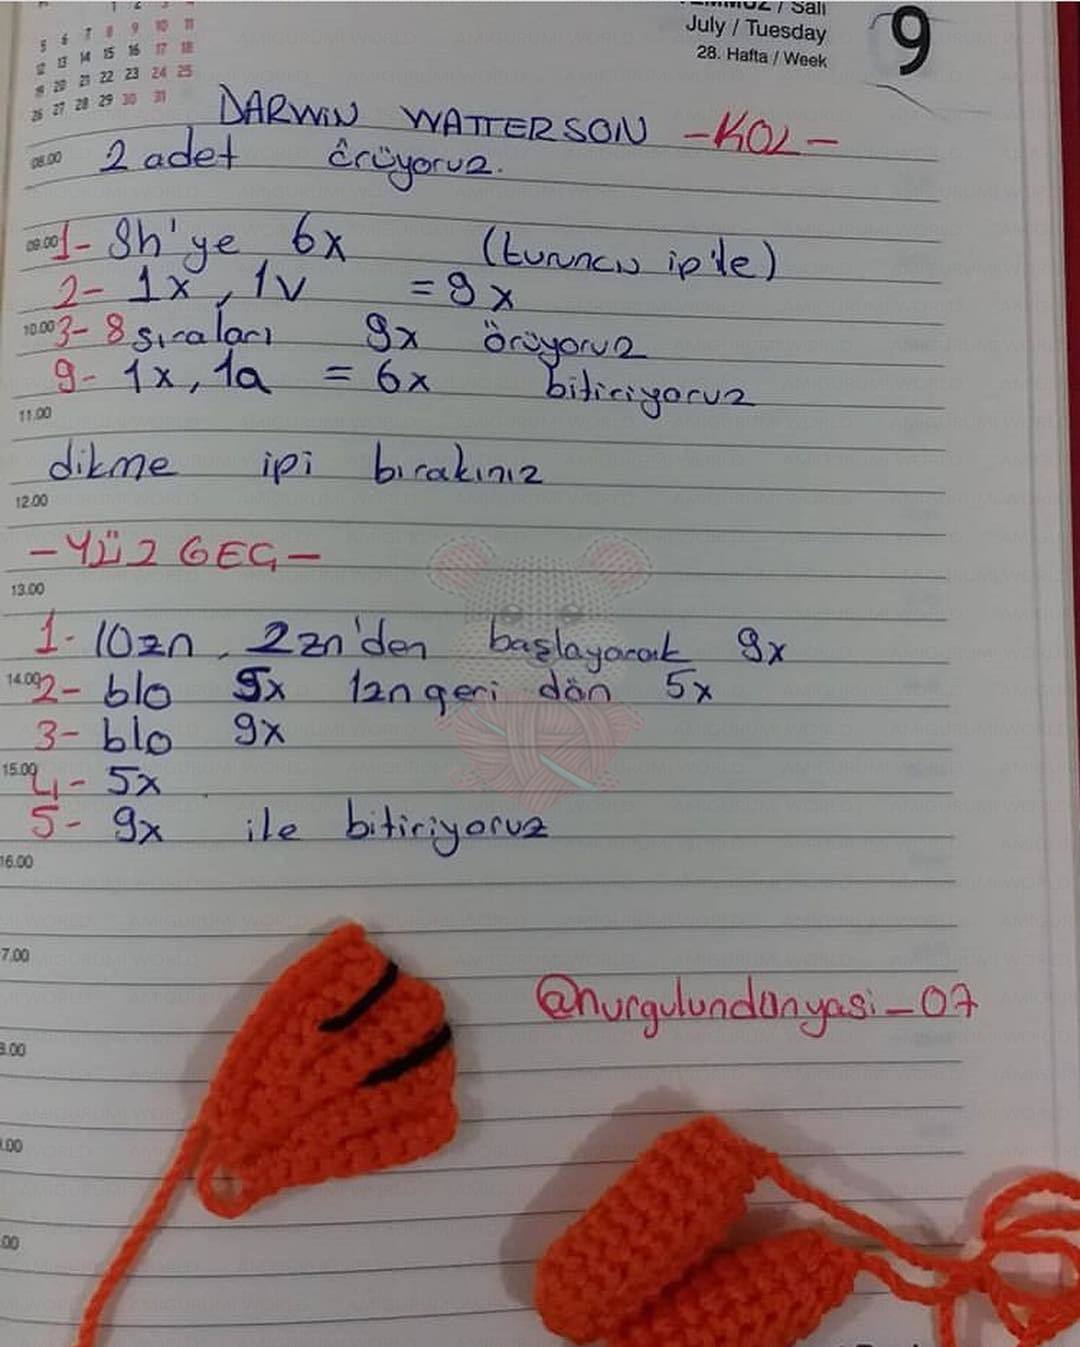 1 2 3 4
5 6 7 8 9 10 11
12 13 14 15 16 17 18
19 20 21 22 23 24 25
26 27 28 29 30 31
TEMMUZ / Salı
July / Tuesday
28. Hafta / Week
9
DARWIN WATTERSON -KOL-
08.00 2 adet örüyoruz.
09.00 1- Sh'ye 6x (turuncu ip'le)
2- 1x, 1v = 9x
10.00 3- 8 sıraları 9x örüyoruz
9- 1x, 1a = 6x bitiriyoruz
11.00
dikme ipi bırakınız
12.00
-YÜZGEÇ-
13.00
1- 10zn, 2zn'den başlayarak 9x
14.00 2- blo 5x 1zn geri dön 5x
3- blo 9x
15.00 4- 5x
5- 9x ile bitiriyoruz
16.00
7.00
@nurgulundunyasi_07
8.00
.00
.00